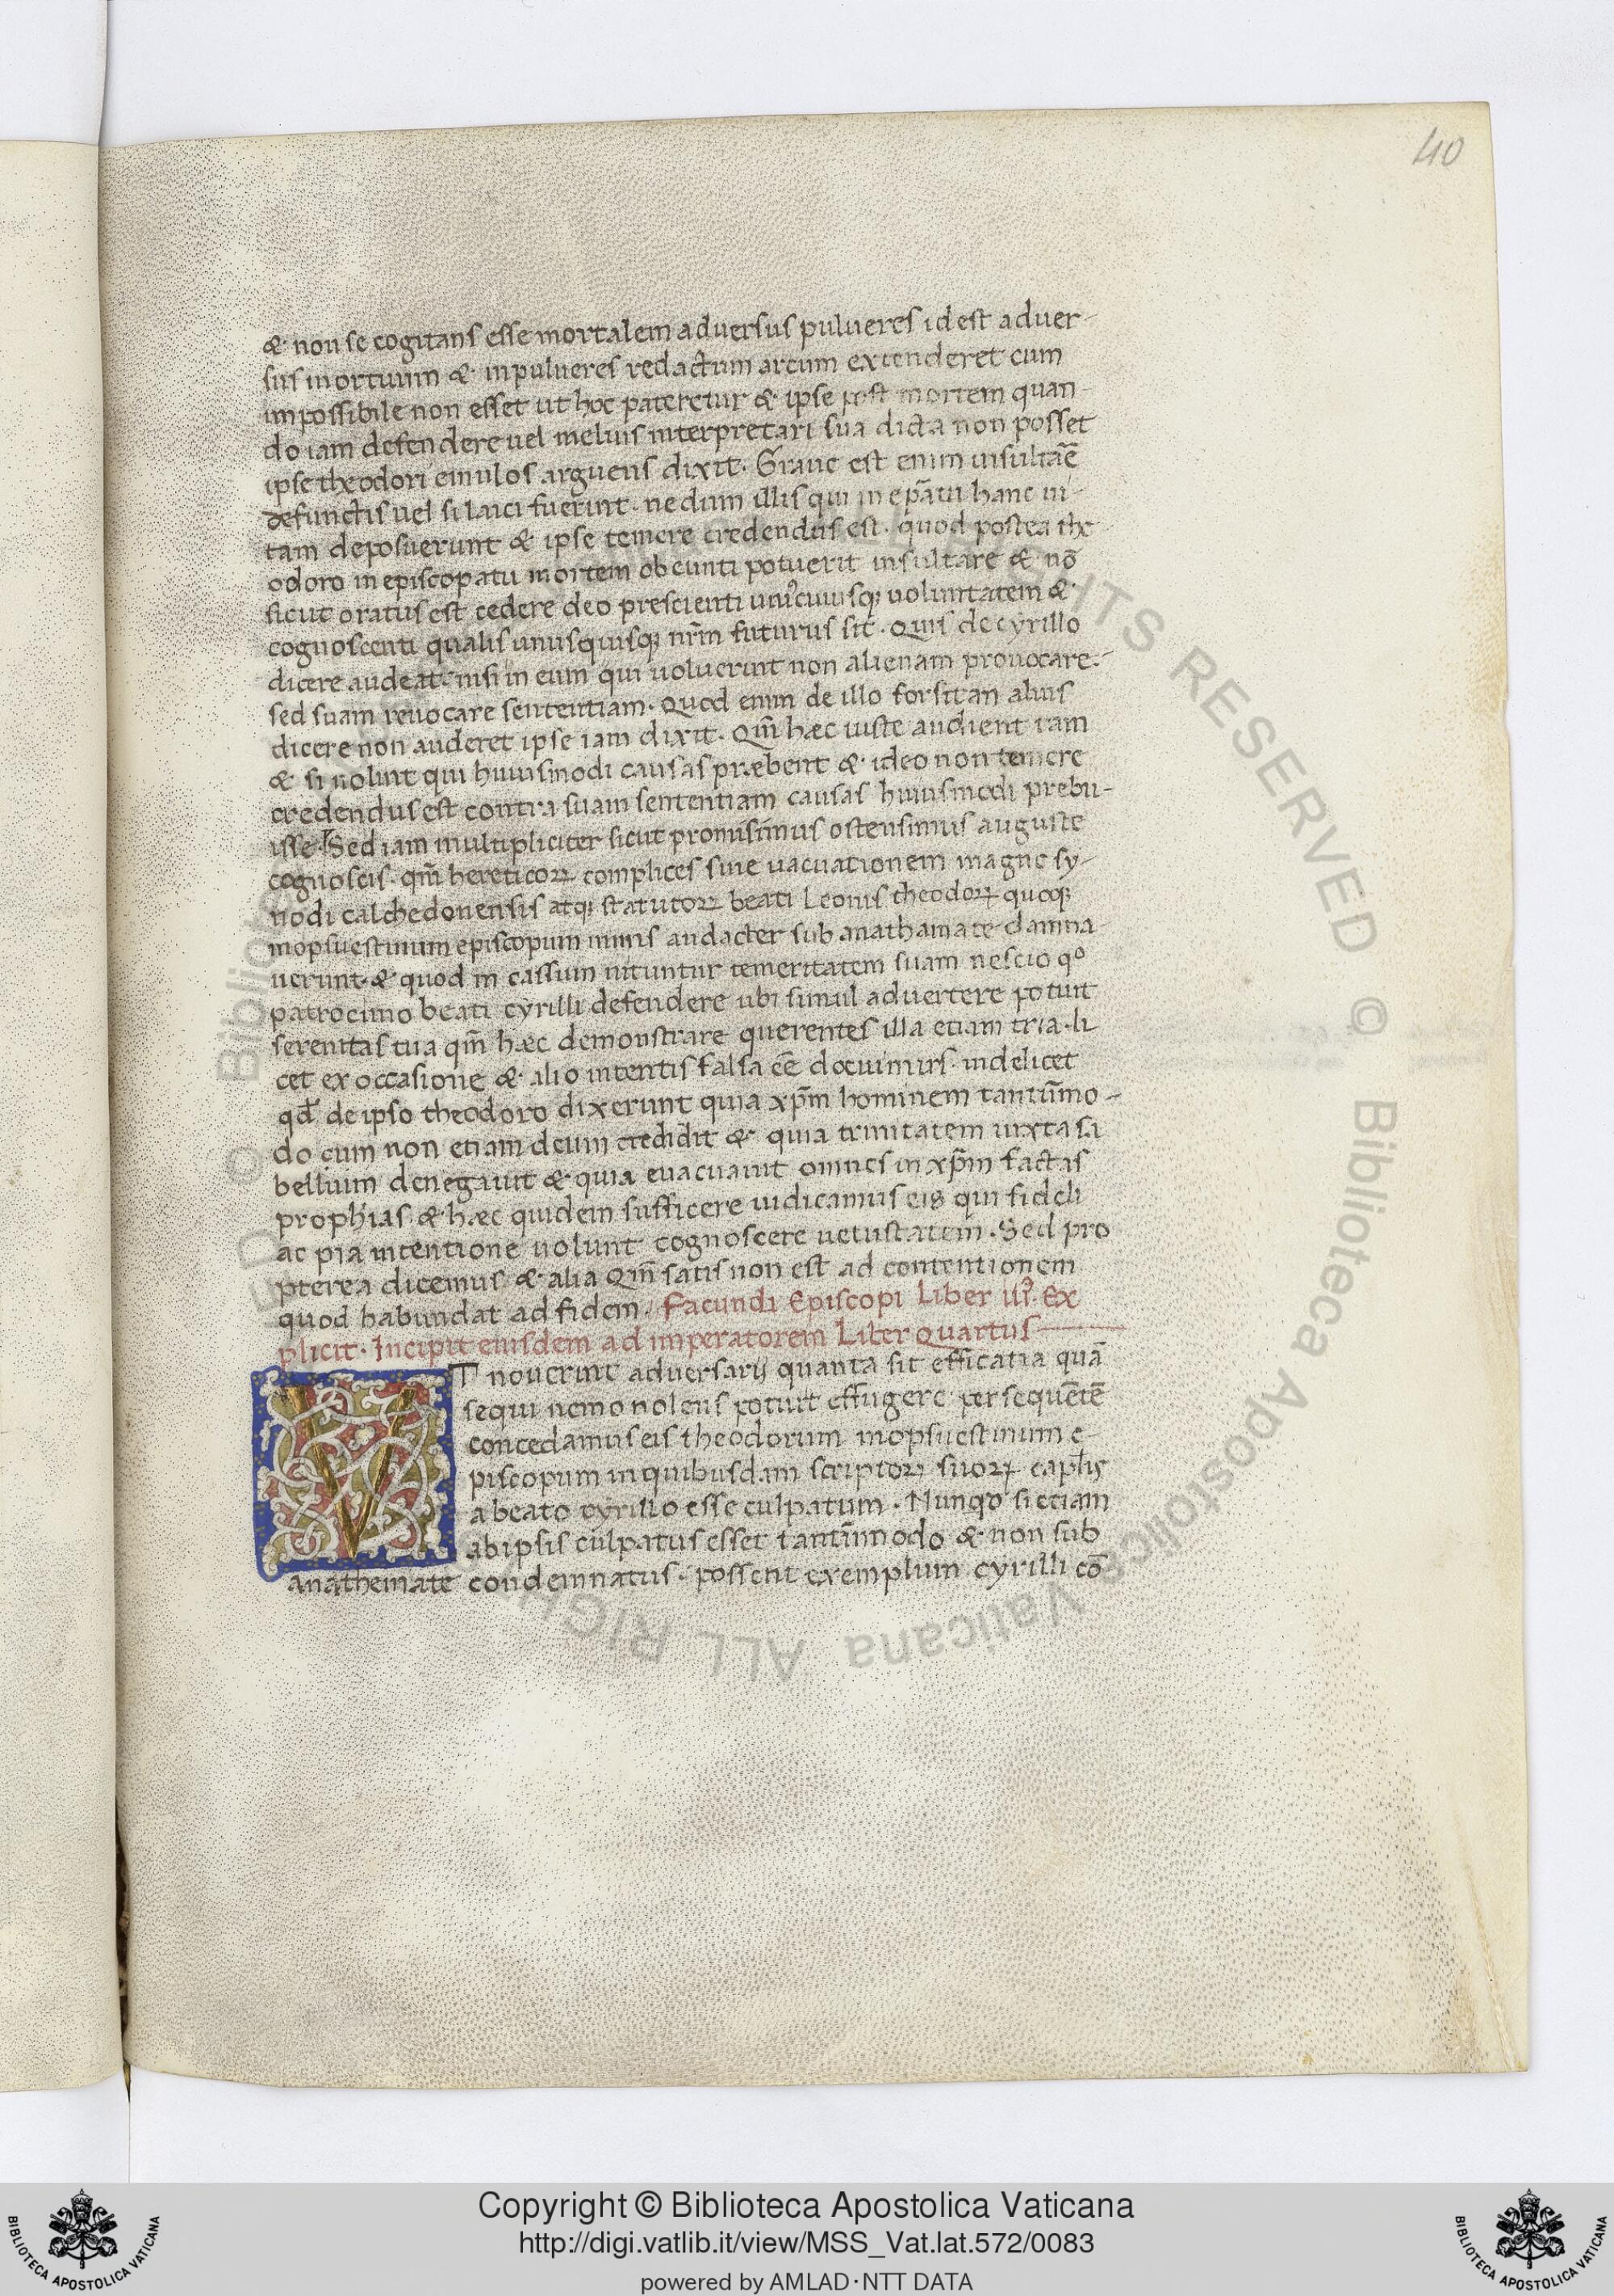 40
& non se cogitans esse mortalem aduersus pulueres id est aduer-
sus mortuum & in pulueres redactum arcum extenderet cum
impossibile non esset ut hoc pateretur & ipse post mortem quan-
do iam defendere uel melius interpretari sua dicta non posset
ipse theodori emulos arguens dixit. Graue est enim insultāē
defunctis uel si laici fuerint. nedum illis qui in ep̄atu hanc ui-
tam deposuerunt & ipse temere credendus est. quod postea the
odoro in episcopatu mortem obeunti potuerit insultare & nō
sicut oratus est cedere deo prescienti uniꝰcuiusq; uoluntatem &
cognoscenti qualis unusquisq; nr̄m futurus sit. Quis de cyrillo
dicere audeat. nisi in eum qui uoluerint non alienam prouocare.-
sed suam reuocare sententiam. Quod enim de illo forsitan alius
dicere non auderet ipse iam dixit. Qm̄ hæc iuste audient iam
& si nolint qui huiusmodi causas præbent & ideo non temere
credendus est contra suam sententiam causas huiusmodi prebu-
isse. Sed iam multipliciter sicut promisimus ostensimus auguste
cognoscis. qm̄ hereticoꝝ complices siue uacuationem magne sy-
nodi calchedonensis atq; statutoꝝ beati Leonis theodoꝝ quoq;
mopsuestinum episcopum nimis audacter sub anathamate damna-
uerunt. & quod in cassum nituntur temeritatem suam nescio qº
patrocinio beati cyrilli defendere ubi simul aduertere potuit
serenitas tua qm̄ hæc demonstrare querentes illa etiam tria. li
cet ex occasione & alio intentis falsa eē docuimus. uidelicet
qđ de ipso theodoro dixerunt quia xp̄m hominem tantūmo-
do cum non etiam deum credidit & quia trinitatem iuxta sa
bellium denegauit & quia euacuauit omnes in xp̄m factas
prophias. & hæc quidem sufficere iudicamus eis qui fideli
ac pia intentione uolunt cognoscere uetustatem. Sed pro
pterea dicemus & alia Qm̄ satis non est ad contentionem
quod habundat ad fidem. Facundi Episcopi Liber iii. Ex
plicit. Incipit eiusdem ad imperatorem Liber Quartus
VT nouerint aduersarij quanta sit efficatia quā
sequi nemo nolens potuit effugere persequētē
concedamus eis theodorum mopsuestinum e-
piscopum in quibusdam scriptoꝝ suoꝝ capłis
a beato cyrillo esse culpatum. Nunqͦ si etiam
ab ipsis culpatus esset tantūmodo & non sub
anathemate condemnatus. possent exemplum cyrilli cō
© Biblioteca Apostolica Vaticana ALL RIGHTS RESERVED
Copyright © Biblioteca Apostolica Vaticana
http://digi.vatlib.it/view/MSS_Vat.lat.572/0083
powered by AMLAD·NTT DATA
BIBLIOTECA APOSTOLICA VATICANA
BIBLIOTECA APOSTOLICA VATICANA